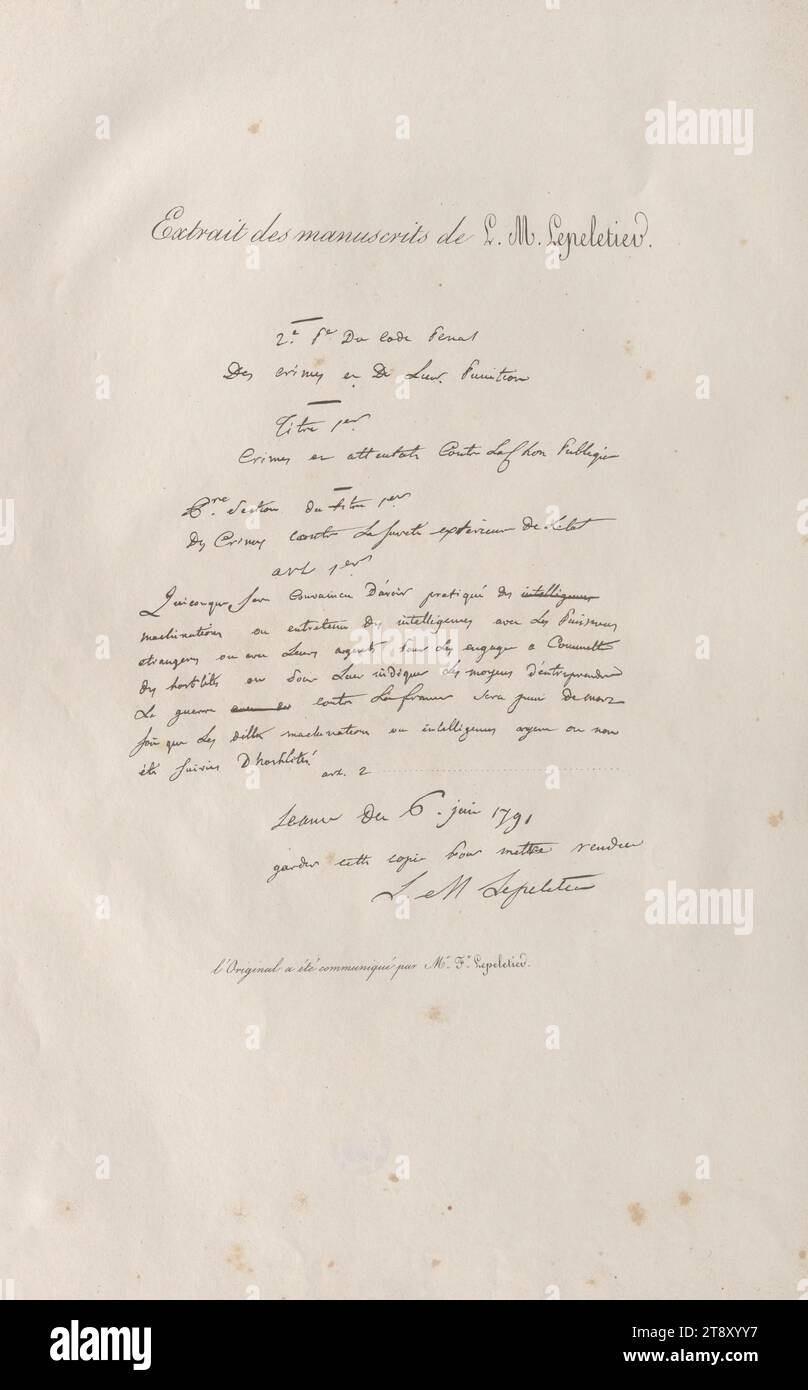 Extrait des manuscrits de L. M. Lepeletier.
2.e Pe Du Code Penal
Des crimes et De Leur Punition
Titre 1er
Crimes et attentats Contre La Chose Publique
section du titre 1er
Des Crimes contre La sureté exterieure De Letat
art 1er
Quiconque sera Convaincu D'avoir pratiqué des intelligences
machinations ou entretenu des intelligences avec Les Puissances
etrangeres ou avec Leurs agents Pour Les engager a Commettre
des hostilités ou Pour Leur indiquer Les moyens d'entreprendre
La guerre contre La france sera puni de mort
soit que Les dittes machinations ou intelligences ayent ou non
été suivies D'hostilités
art. 2
seance Du 6. juin 1791
garder cette copie Pour mettre
L. M Lepeletier
l'Original a été communiqué par Mr. Fx. Lepeletier.
alamy
Image ID: 2T8XYY7
www.alamy.com